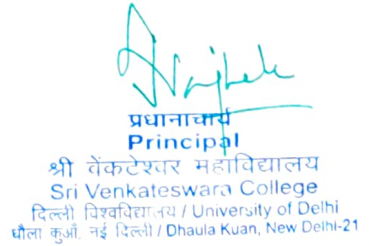 प्रधानाचार्य
Principal
श्री वेंकटेश्वर महाविद्यालय
Sri Venkateswara College
दिल्ली विश्वविद्यालय / University of Delhi
धौला कुआँ, नई दिल्ली / Dhaula Kuan, New Delhi-21